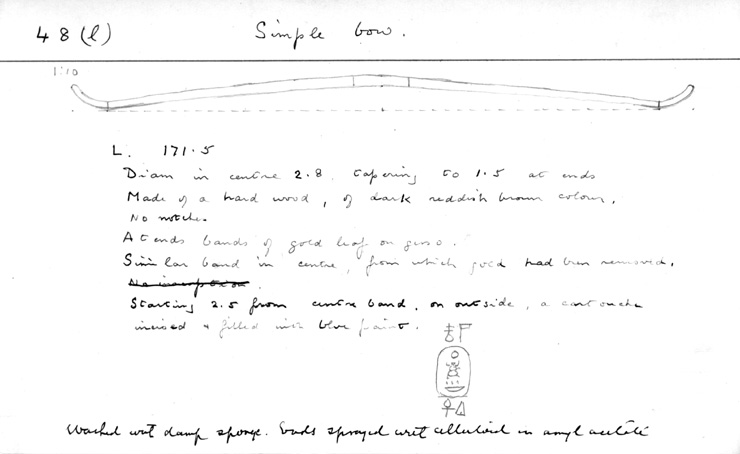 48 (l) Simple bow.
1:10
L. 171.5
Diam in centre 2.8, tapering to 1.5 at ends
Made of a hard wood, of dark reddish brown colour.
No notches.
At ends bands of gold leaf on gesso.
Similar band in centre, from which gold had been removed.
No inscription.
Starting 2.5 from centre band, on outside, a cartouche
incised & filled with blue paint.
Washed with damp sponge. Ends sprayed with celluloid in amyl acetate